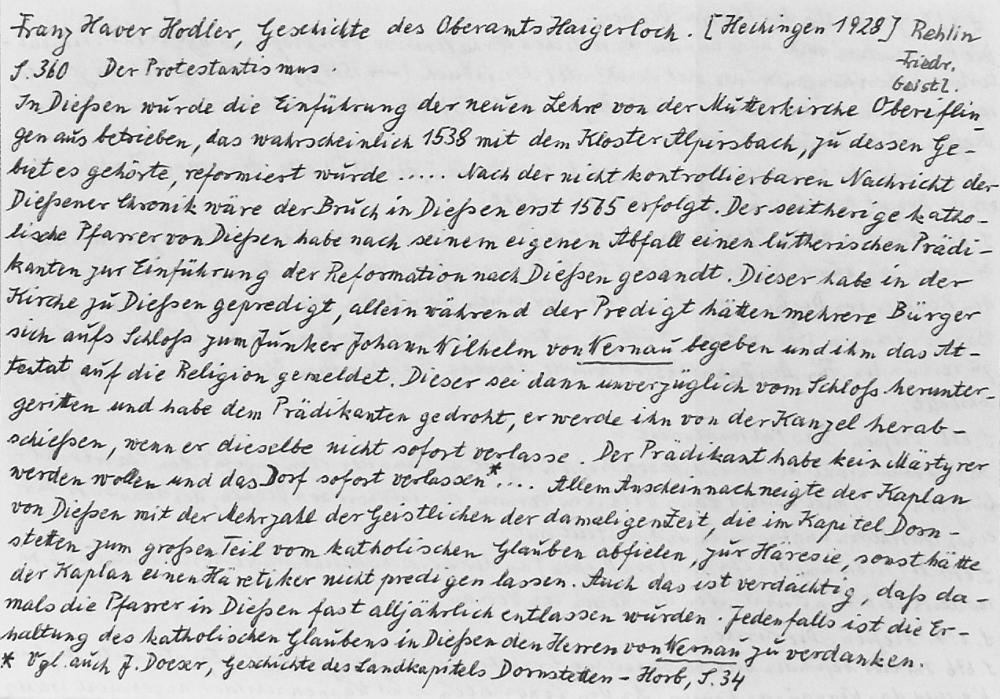 Franz Xaver Hodler, Geschichte des Oberamts Haigerloch. [Hechingen 1928] Rehlin
Friedr,
S.360 Der Protestantismus.
Geistl.
In Dießen wurde die Einführung der neuen Lehre von der Mutterkirche Oberiflin-
gen aus betrieben, das wahrscheinlich 1538 mit dem Kloster Alpirsbach, zu dessen Ge-
biet es gehörte, reformiert wurde ..... Nach der nicht kontrollierbaren Nachricht der
Dießener Chronik wäre der Bruch in Dießen erst 1565 erfolgt. Der seitherige katho-
lische Pfarrer von Dießen habe nach seinem eigenen Abfall einen lutherischen Prädi-
kanten zur Einführung der Reformation nach Dießen gesandt. Dieser habe in der
Kirche zu Dießen gepredigt, allein während der Predigt hätten mehrere Bürger
sich aufs Schloß zum Junker Johann Wilhelm von Wernau begeben und ihm das At-
tentat auf die Religion gemeldet. Dieser sei dann unverzüglich vom Schloß herunter-
geritten und habe dem Prädikanten gedroht, er werde ihn von der Kanzel herab-
schießen, wenn er dieselbe nicht sofort verlasse. Der Prädikant habe kein Märtyrer
werden wollen und das Dorf sofort verlassen*.... Allem Anschein nach neigte der Kaplan
von Dießen mit der Mehrzahl der Geistlichen der damaligen Zeit, die im Kapitel Dorn
stetten zum großen Teil vom katholischen Glauben abfielen, zur Häresie, sonst hätte
der Kaplan einen Häretiker nicht predigen lassen. Auch das ist verdächtig, daß da-
mals die Pfarrer in Dießen fast alljährlich entlassen wurden. Jedenfalls ist die Er-
haltung des katholischen Glaubens in Dießen den Herren von Wernau zu verdanken.
* Vgl. auch J. Doeser, Geschichte des Landkapitels Dornstetten - Horb, S.34